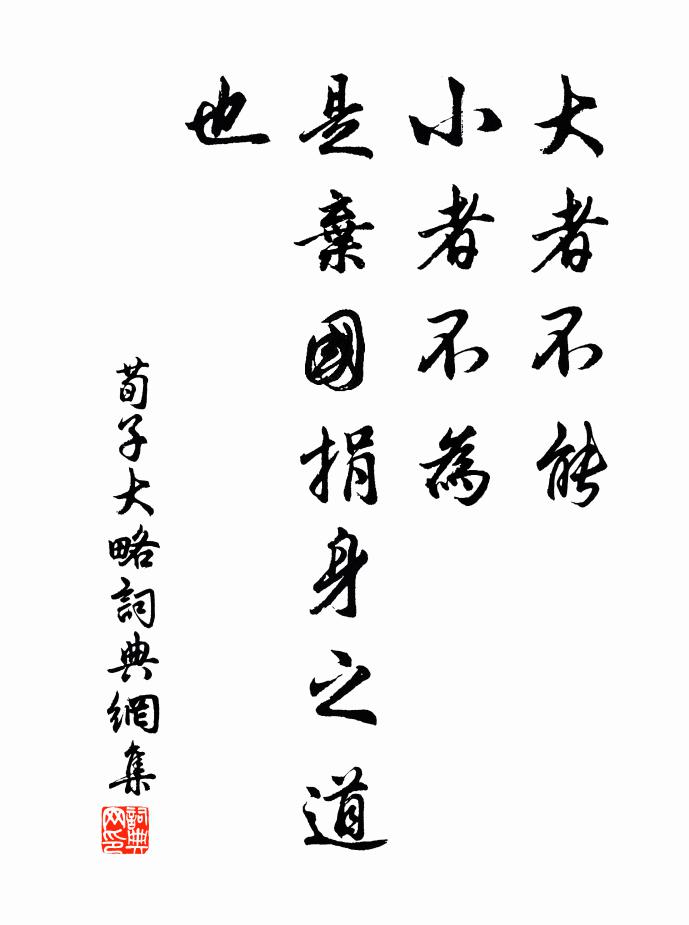 大者不能
小者不為
是棄國捐身之道
也
荀子大略詞典網集
詞典
网印